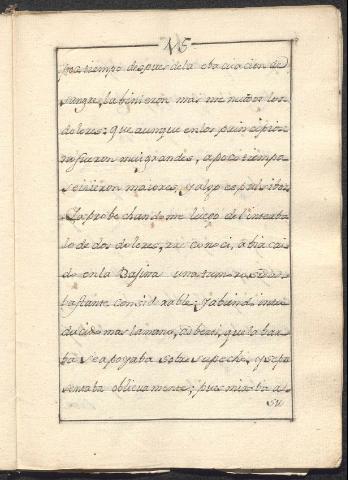 15
tiempo despues de la ebacuacion de
sangre, la binieron mas menudos los
dolores; que aunque en los principios
no fueron mui grandes, a poco tiempo
se icieron maiores, y algo espulsibos
Aprobechandome luego del interba
lo de dos dolores, re conoci, abia cai
do en la Bajina una tumorosidad
bastante considrable; y abiendo intro
ducido mas la mano, adberti, que la bar
ba se apoyaba sobre su pecho, y se pre
sentaba oblicuamente; pues miraba a
su